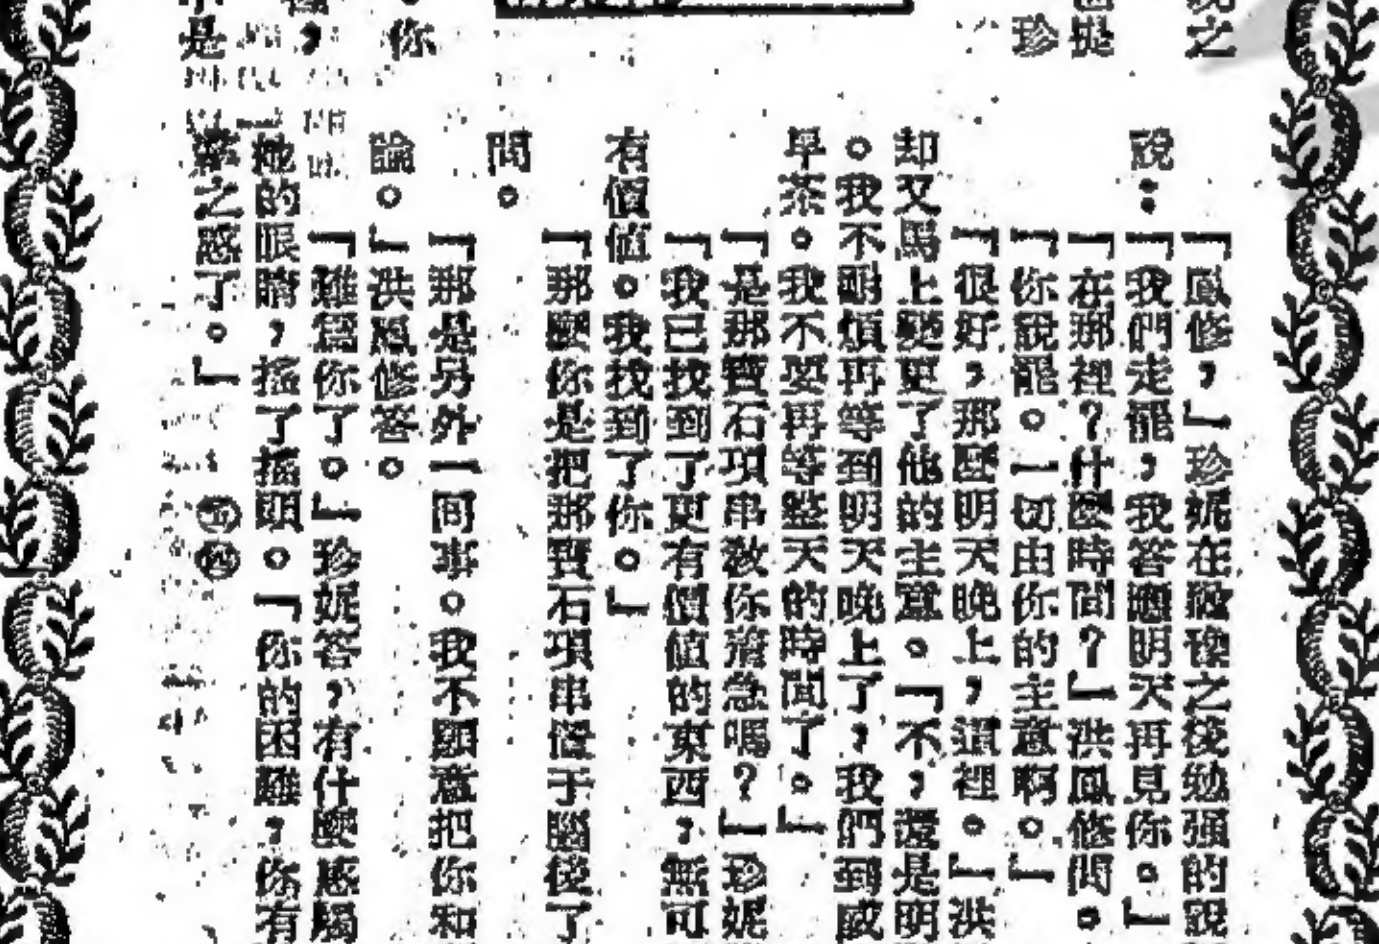 說之
提
珍
你
是
「鳳修，」珍妮在微慄之後勉强的說
說：
「我們走罷，我答應明天再見你。」
「在那裡？什麼時間？」洪鳳修問。
「你說罷。一切由你的主意啊。」
「很好，那麼明天晚上，這裡。」洪
却又馬上變更了他的主意。「不，還是明
。我不耐煩再等到明天晚上了，我們到
早茶。我不要再等整天的時間了。」
「是那寶石項串敎你着急嗎？」珍妮
「我已找到了更有價值的東西，無可
有價值。我找到了你。」
「那麼你是把那寶石項串置于腦後了
問。
「那是另外一囘事。我不願意把你和
論。」洪鳳修答。
「難爲你了。」珍妮答，有什麼感觸
她的眼睛，搖了搖頭。「你的困難，你有
之惑了。」
五四